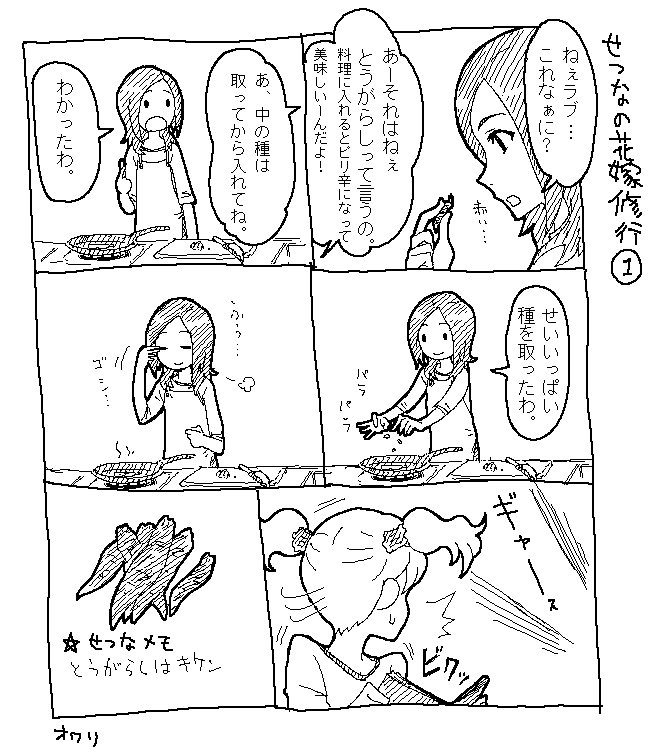 せつなの花嫁修行①
ねぇラブ…
これなぁに?
赤い…
あーそれはねぇ
とうがらしって言うの。
料理に入れるとピリ辛になって
美味しいーんだよ!
あ、中の種は
取ってから入れてね。
わかったわ。
せいいっぱい
種を取ったわ。
パラ
パラ
ふぅ?…
ゴシ…
ギャースュ
ビクッ
☆せつなメモ
とうがらしはキケン
オワリ